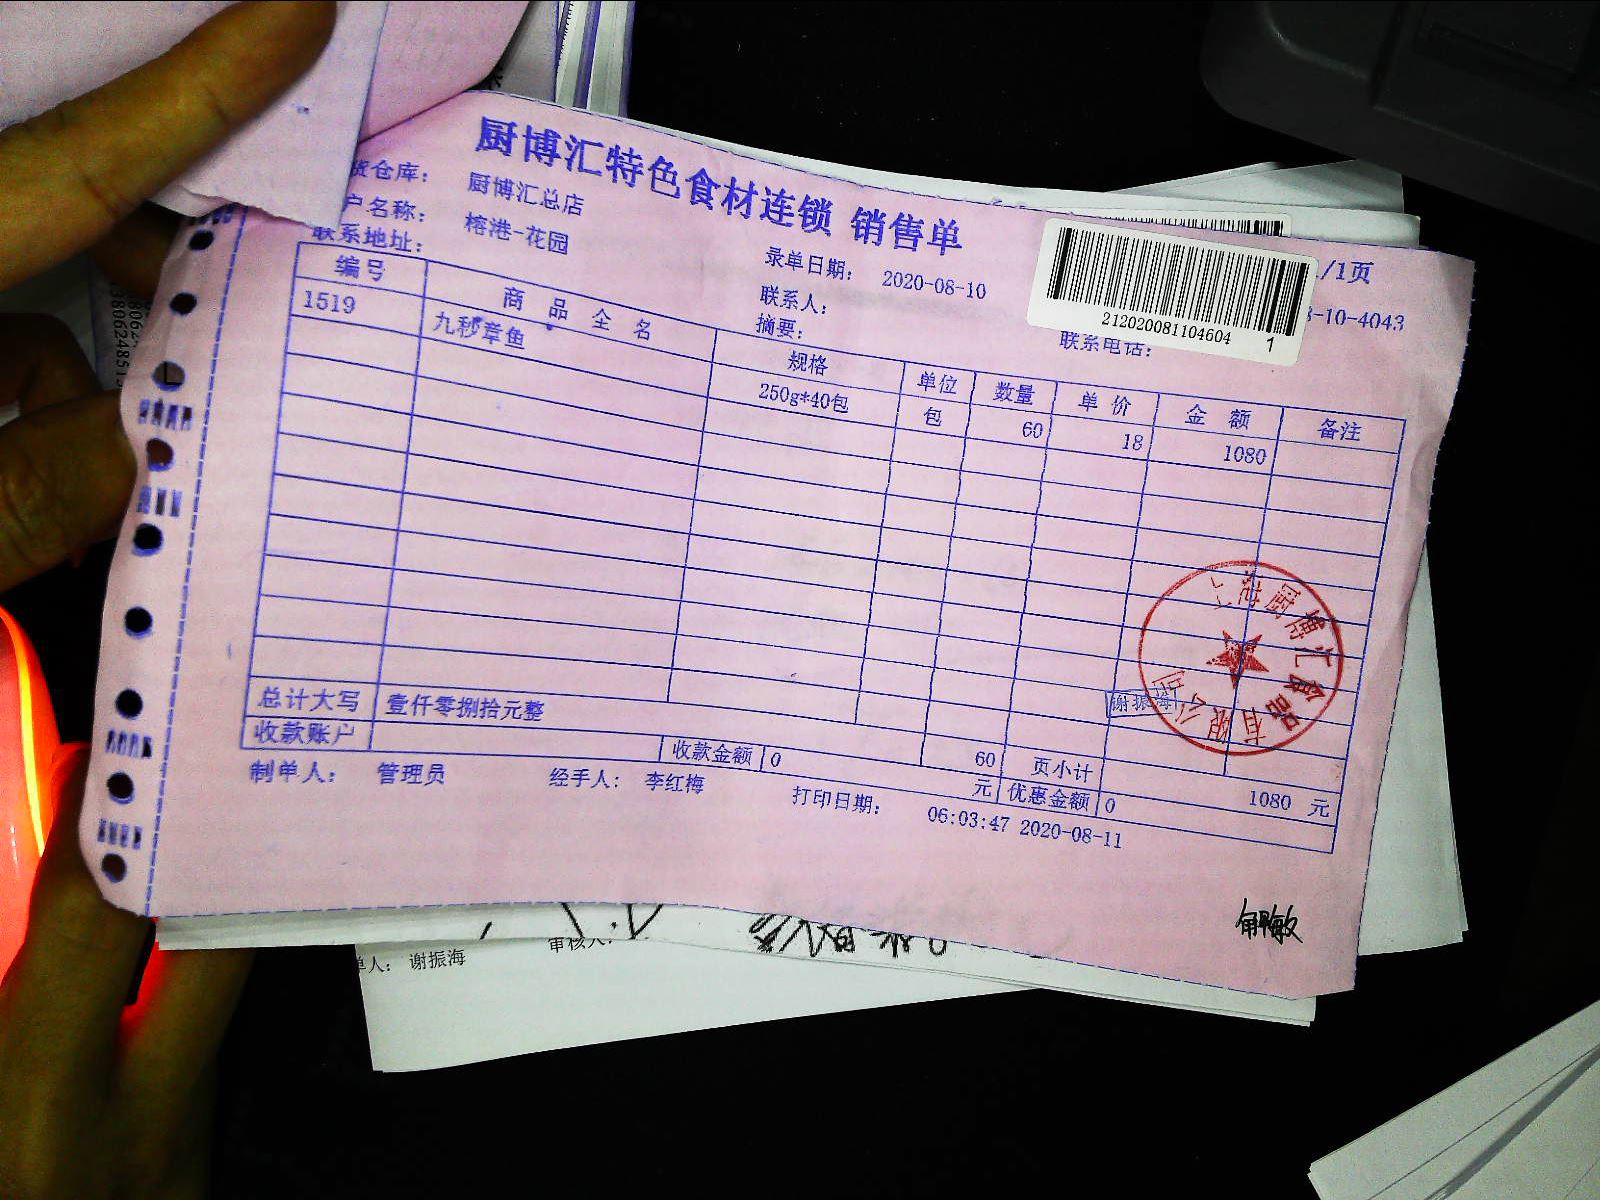 厨博汇特色食材连锁 销售单
货仓库： 厨博汇总店
户名称： 榕港-花园
联系地址：
录单日期： 2020-08-10
联系人：
摘要：
1/1页
8-10-4043
联系电话：
212020081104604 1
编号 商品全名 规格 单位 数量 单价 金额 备注
1519 九秒章鱼 250g*40包 包 60 18 1080
总计大写 壹仟零捌拾元整 60 页小计 1080 元
收款账户 收款金额 0 元 优惠金额 0
制单人： 管理员 经手人： 李红梅 打印日期： 06:03:47 2020-08-11
上海厨博汇食品有限公司
谢振海
单人： 谢振海 审核人：